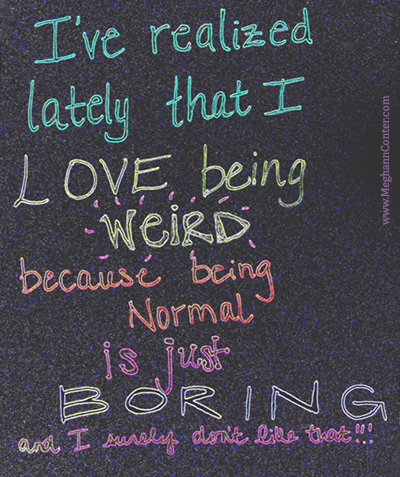 I've realized
lately that I
LOVE being
WEIRD
because being
Normal
is just
BORING
and I surely don't like that!!!
www.MeghannConter.com